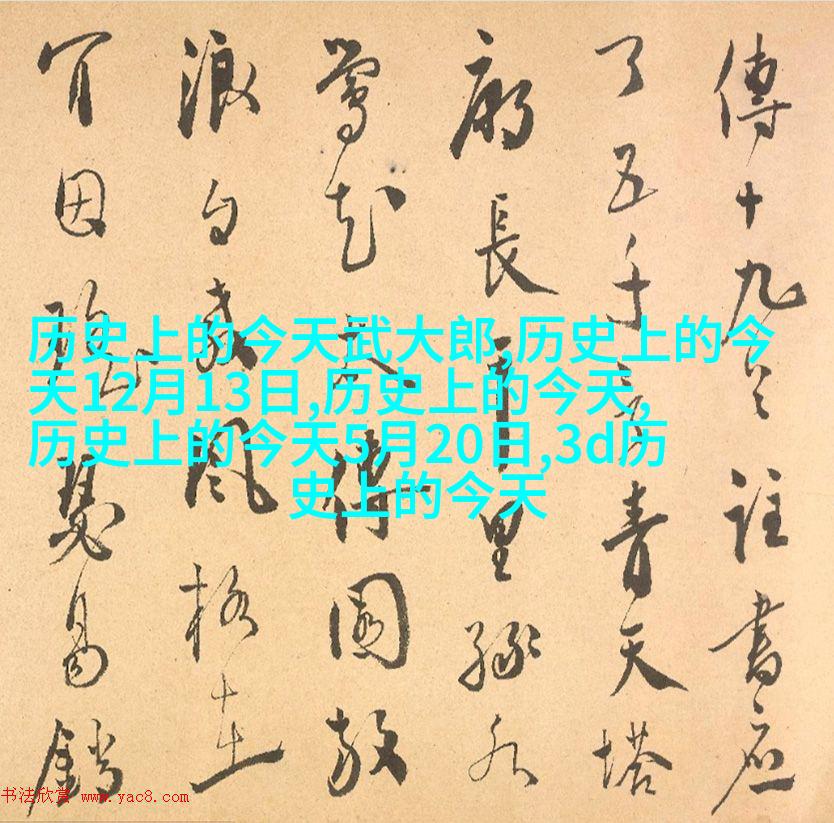 历史上的今天武大郎,历史上的今
天12月13日,历史上的今天,
历史上的今天5月20日,3d历
史上的今天
傳十九註書應
了五千青天塔
長里緣水
鶯花傳園
浪白風格在
因易銷
书法欣赏 www.yac8.com